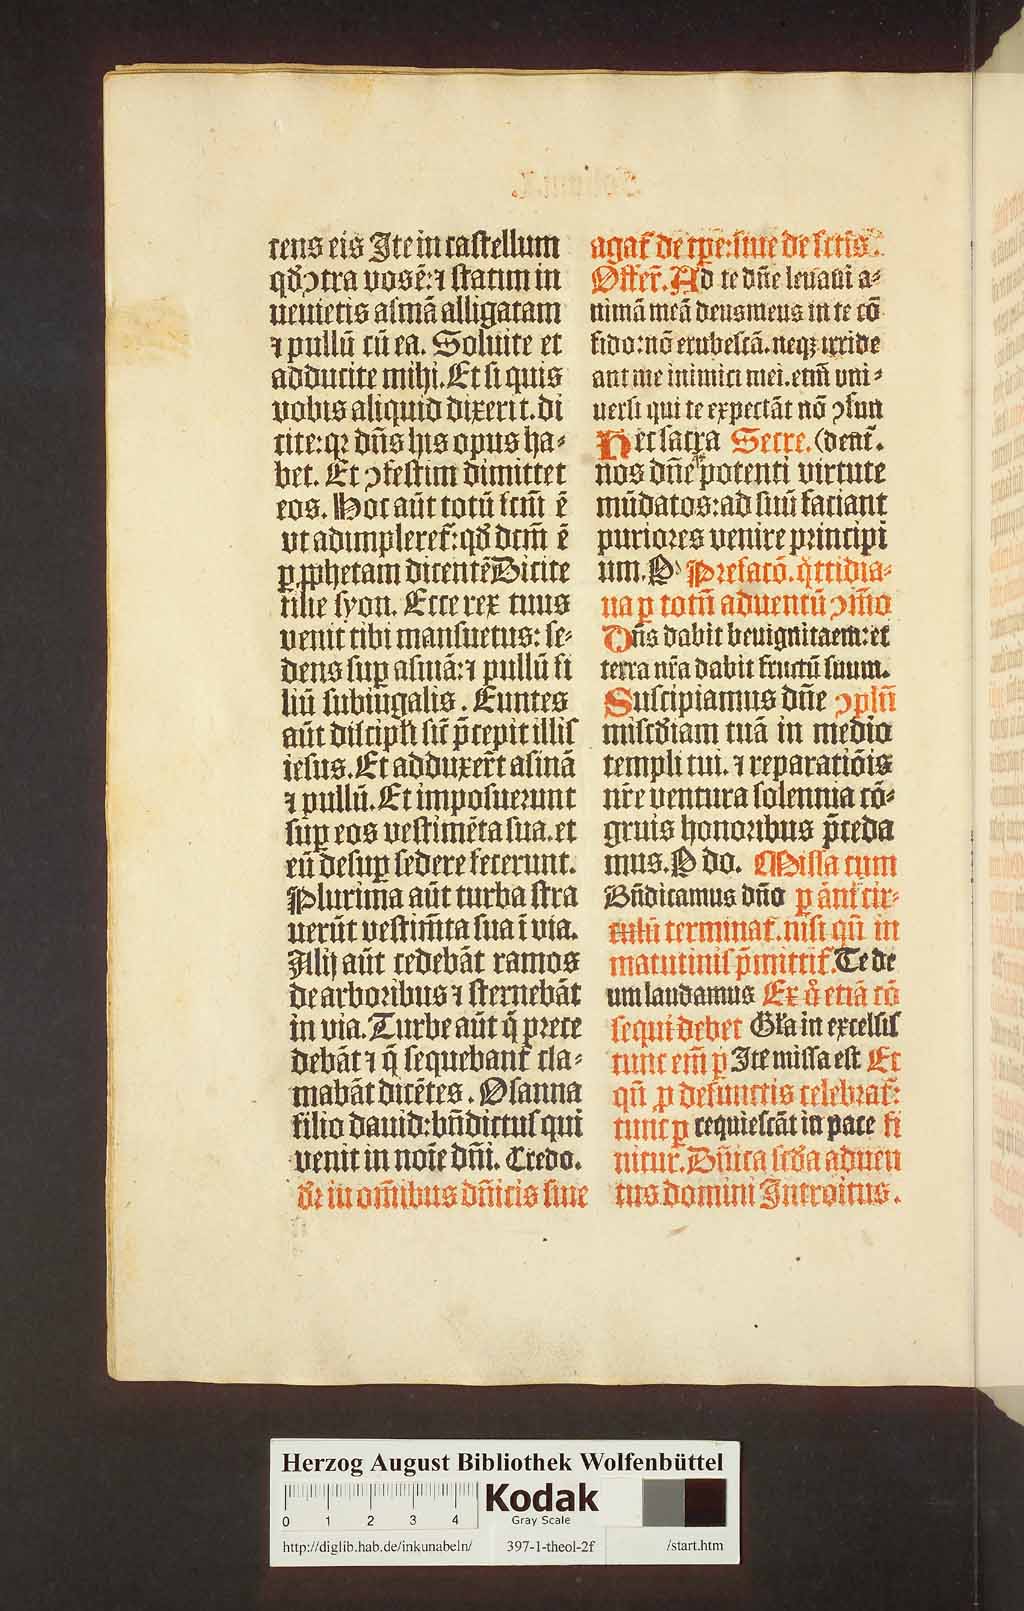 cens eis Ite in castellum
qđ ꝯtra vos ē: ⁊ statim in
uenietis asinā alligatam
⁊ pullū cū ea. Soluite et
adducite mihi. Et si quis
vobis aliquid dixerit. di
cite: qꝛ dn̄s his opus ha⸗
bet. Et ꝯfestim dimittet
eos. Hoc aūt totū fctm̄ ē
vt adimpleret᷑: qđ dcm̄ ē
ꝑ ꝓphetam dicentē Dicite
filie syon. Ecce rex tuus
venit tibi mansuetus: se⸗
dens suꝑ asinā: ⁊ pullū fi
liū subiugalis. Euntes
aūt discipĺi sic̄ p̄cepit illis
iesus. Et adduxer̄t asinā
⁊ pullū. Et imposuerunt
suꝑ eos vestimēta sua. et
eū desuꝑ sedere fecerunt.
Plurima aūt turba stra
uerūt vestim̄ta sua ī via.
Alij aūt cedebāt ramos
de arboribus ⁊ sternebāt
in via. Turbe aūt q̄ prece
debāt ⁊ q̄ sequebant᷑ cla⸗
mabāt dicētes. Osanna
filio dauid: bn̄dictus qui
venit in noīe dn̄i. Credo.
đr in om̄ibus dn̄icis siue
agat᷑ de tꝑe: siue de sctis.
Offer̄. Ad te dn̄e leuaui a⸗
nimā meā deus meus in te cō
fido: nō erubescā. neqꝫ irride
ant me inimici mei. etm̄ vni⸗
uersi qui te expectāt nō ꝯfun
Hec sacra Secre. (dent᷑.
nos dn̄e potenti virtute
mūdatos: ad suū faciant
puriores venire principi
um. P Prefacō. q̄ttidia⸗
na ꝑ totū aduentū ꝯm̄o
Dn̄s dabit beuignitaem: et
terra nr̄a dabit fructū suum.
Suscipiamus dn̄e ꝯpln̄
miscđiam tuā in medio
templi tui. ⁊ reparatiōis
nr̄e ventura solennia cō⸗
gruis honoribus p̄ceda
mus. P do. Missa cum
Bn̄dicamus dn̄o ꝑ ān̄ cir⸗
culū terminat᷑. nisi qn̄ in
matutinis p̄mittit᷑. Te de
um laudamus Ex q̊ etiā cō
sequi debet Gĺa in excelsis
tunc em̄ ꝑ Ite missa est Et
qn̄ ꝓ defunctis celebrat᷑:
tunc ꝑ requiescāt in pace fi
nitur. Dn̄ica scđa aduen
tus domini Introitus.
Herzog August Bibliothek Wolfenbüttel
0 1 2 3 4
Kodak
Gray Scale
http://diglib.hab.de/inkunabeln/ 397-1-theol-2f /start.htm